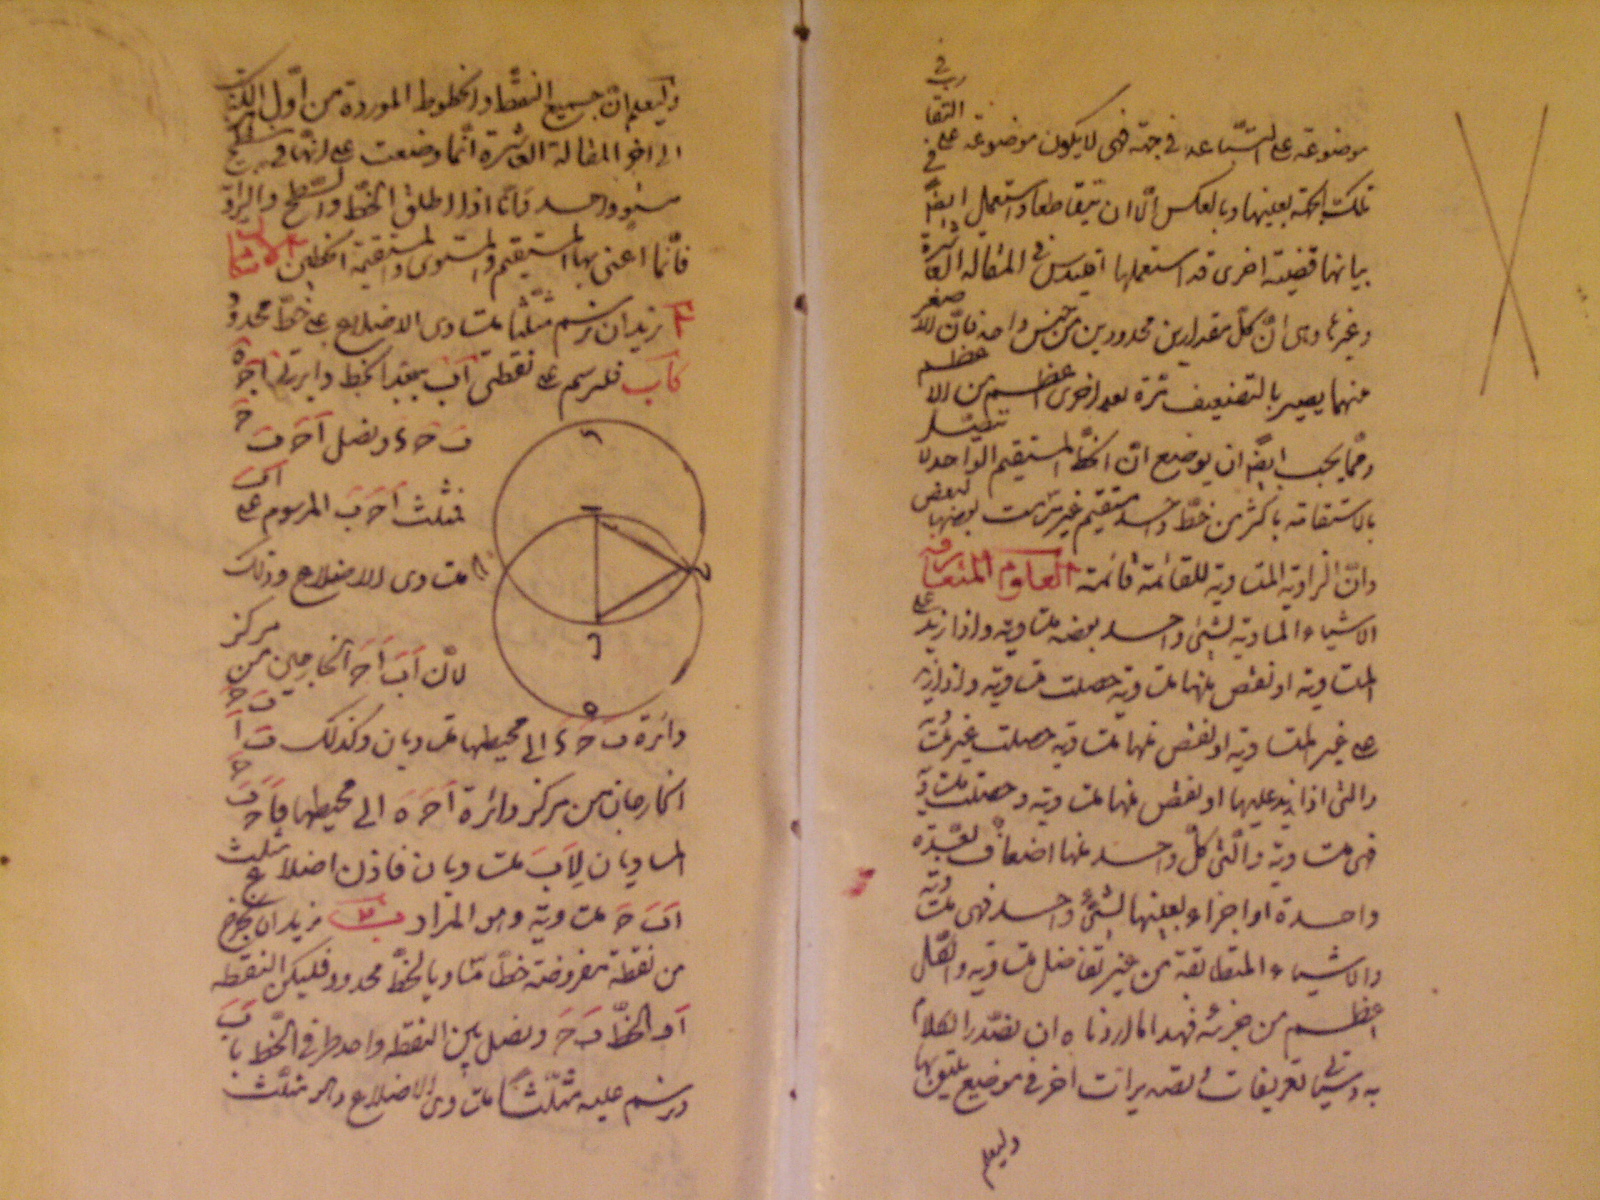 موضوعة على التباعد في جهة فهي لا يكون موضوعة على التقارب في
تلك الجهة بعينها وبالعكس الا ان يتقاطعا واستعمل ايضا في
بيانها قضية اخرى قد استعملها اقليدس في المقالة العاشرة
وغيرها وهي ان كل مقدارين محدودين من جنس واحد فان الاصغر
منهما يصير بالتضعيف مرة بعد اخرى اعظم من الاعظم
ومما يجب ايضا ان يوضع ان الخط المستقيم الواحد لا يتصل
بالاستقامة باكثر من خط واحد مستقيم غير متسامت بعضها لبعض
وان الزاوية المتساوية للقائمة قائمة العلوم المتعارفة
الاشياء المساوية لشئ واحد بعينه متساوية واذا زيد على
المتساوية او نقص منها متساوية حصلت متساوية واذا زيد
على غير المتساوية او نقص منها متساوية حصلت غير متساوية
والتي اذا زيد عليها او نقص منها متساوية وحصلت متساوية
فهي متساوية والتي كل واحد منها اضعاف بعدة
واحدة او اجزاء بعينها لشئ واحد فهي متساوية
والاشياء المتطابقة من غير تفاضل متساوية والكل
اعظم من جزئه فهذا ما اردناه ان نصدر الكلام
به وسياتي تعريفات وتصديرات اخر في موضع يليق بها
وليعلم
وليعلم ان جميع النقط والخطوط الموردة من اول الكتاب
الى اخر المقالة العاشرة انما وضعت على انها في سطح
مستو واحد فانا اذا اطلق الخط والسطح والزاوية
فانما اعني بها المستقيم والمستوى والمستقيمة الخطين الاشكال
آ نريد ان نرسم مثلثا متساوى الاضلاع على خط محدود
كآب فلنرسم على نقطتي آ ب ببعد الخط دايرتي ا ح ه
ب ح د ونصل آ ح ب ح
فمثلث آ ح ب المرسوم على ا ب
متساوى الاضلاع وذلك
لان آ ب آ ح الخارجين من مركز
دائرة ب ح د الى محيطها متساويان وكذلك ب ا ب ح
الخارجان من مركز دائرة آ ح ه الى محيطها فآ ح ب ح
المساويان لآ ب متساويان فاذن اضلاع مثلث
آ ب ح متساوية وهو المراد ب نريد ان نخرج
من نقطة مفروضة خطا مساويا لخط محدود فليكن النقطة
آ والخط ب ح ونصل بين النقطة واحد طرفي الخط با ب
ونرسم عليه مثلثا متساوى الاضلاع وهو مثلث